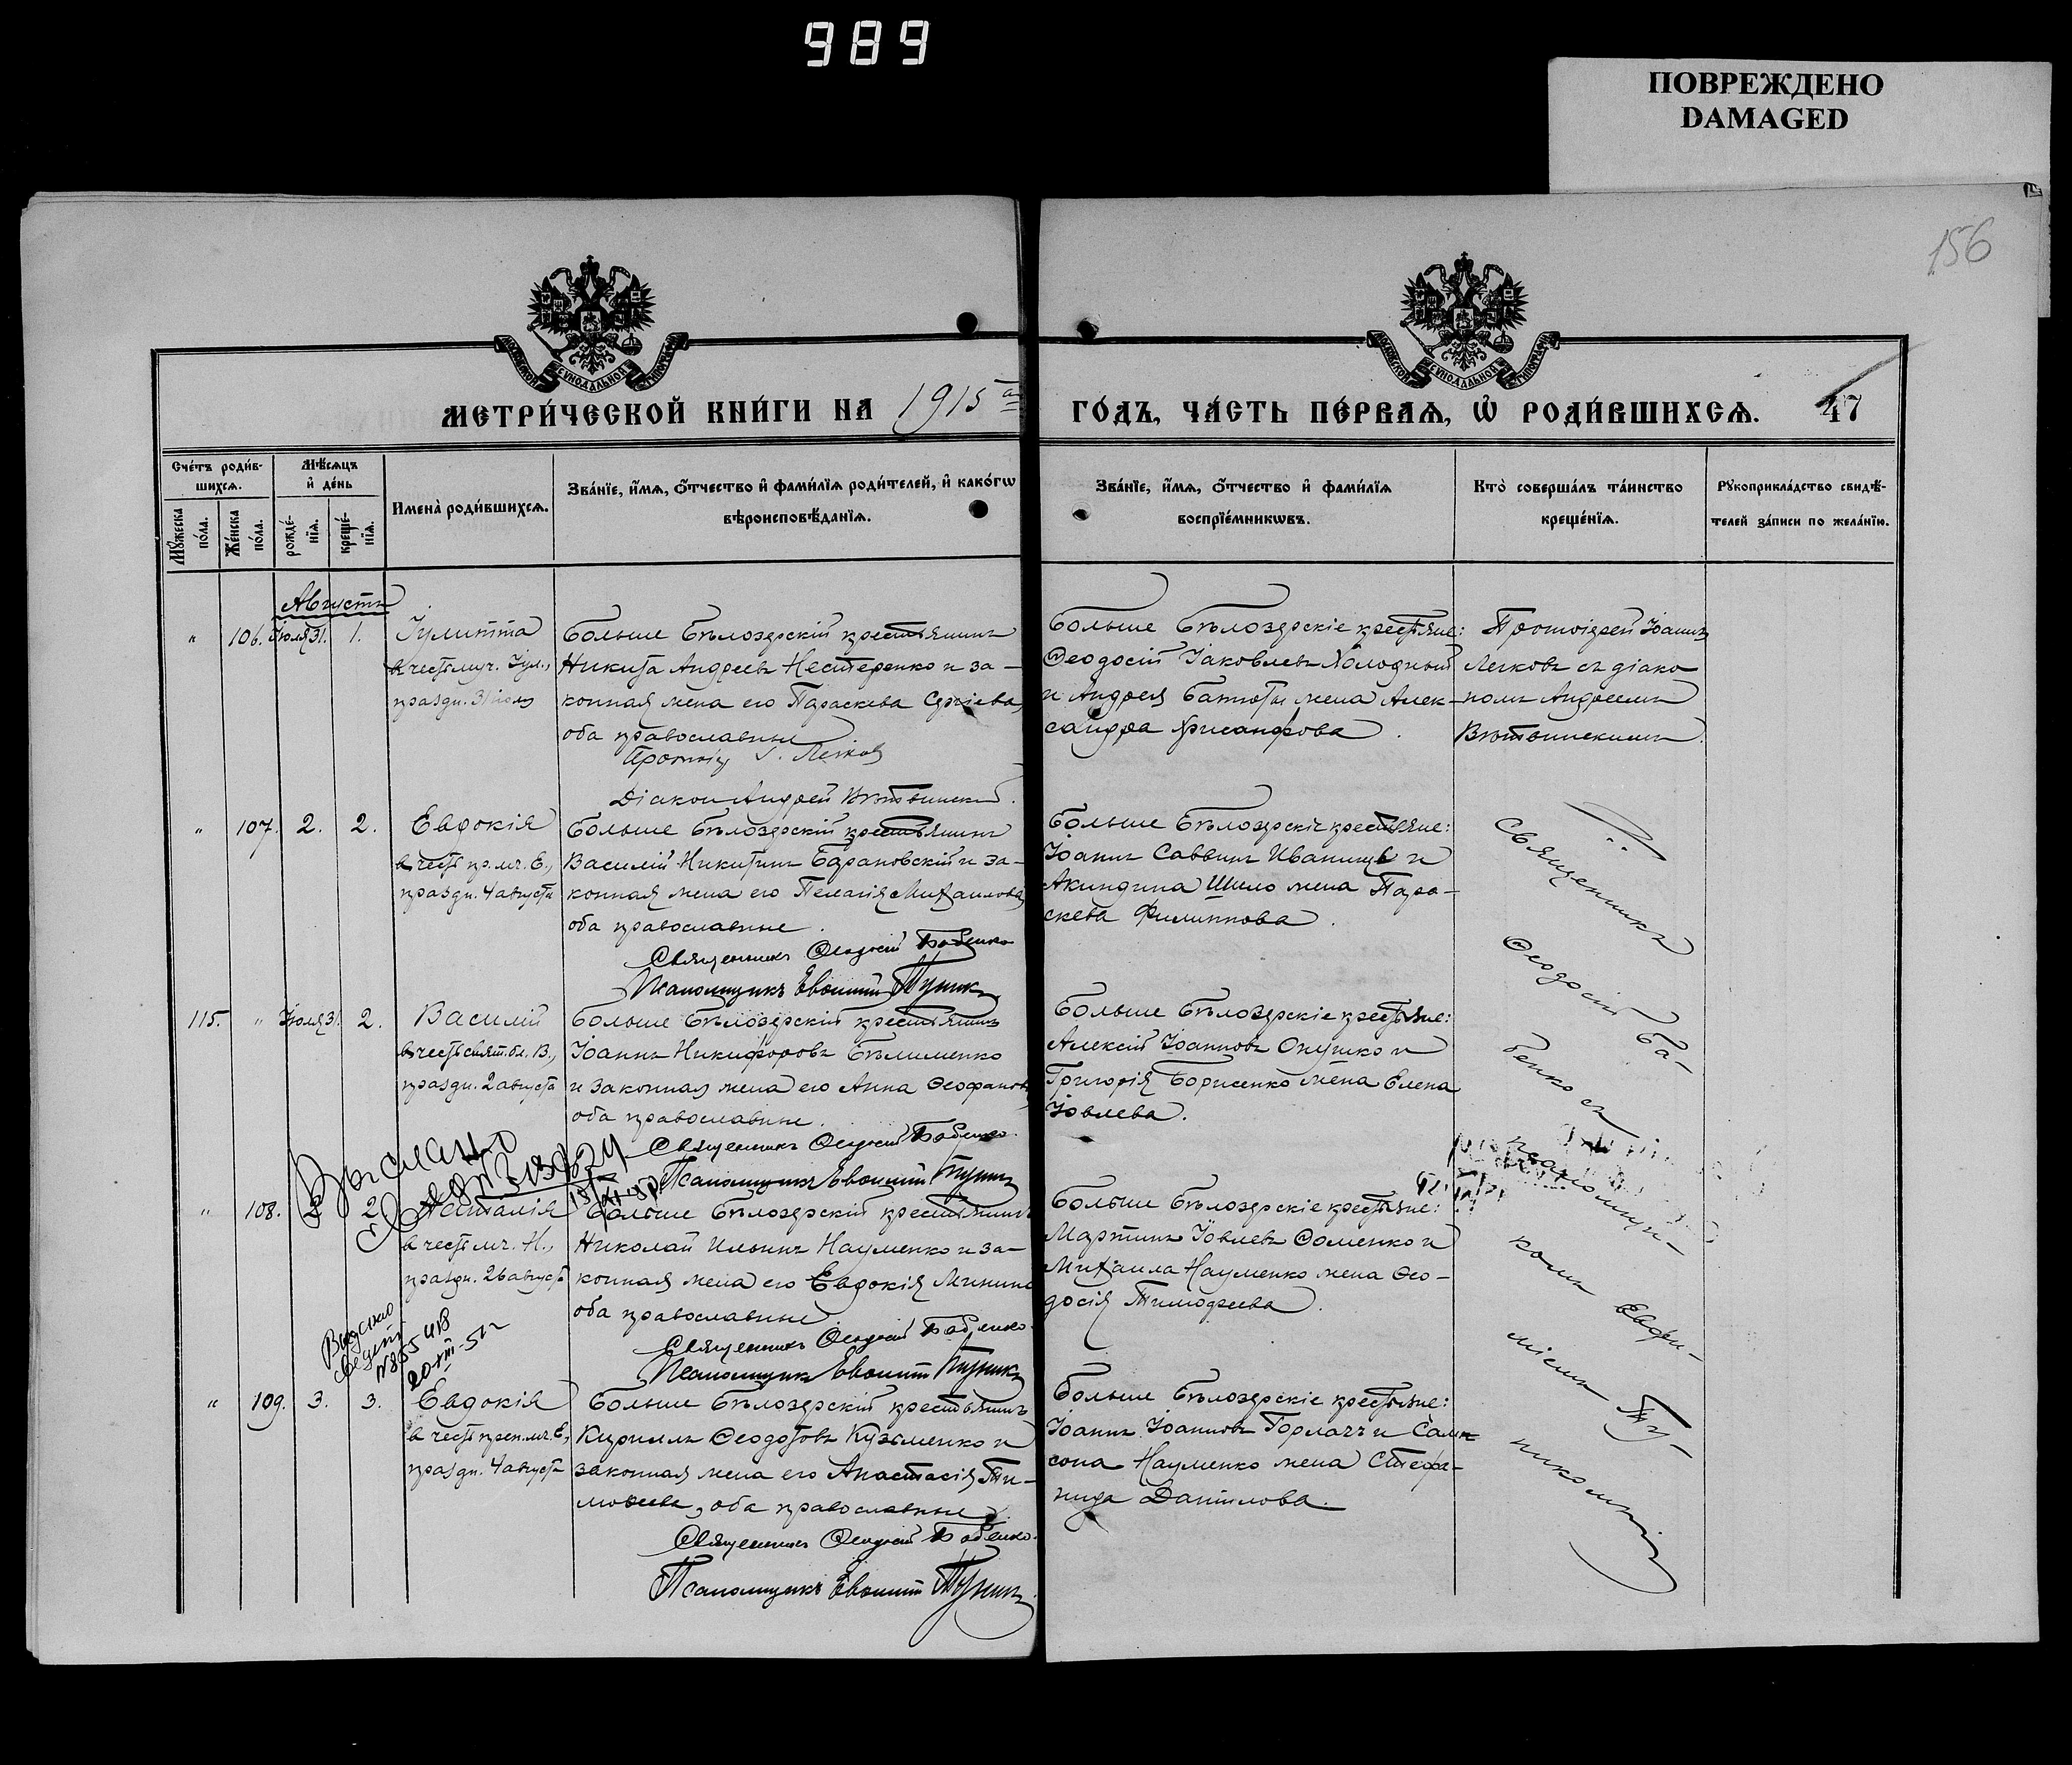 989
ПОВРЕЖДЕНО
DAMAGED
156
МЕТРИ́ЧЕСКОЙ КНИ́ГИ НА 1915
ГО́ДЪ, ЧА́СТЬ ПЕ́РВАѦ, Ѡ҆ РОДИ́ВШИХСѦ. 47
Сче́тъ роди́в-
шихсѧ.
Мѣ́сѧцъ
и҆ де́нь
Мꙋ́жеска по́ла.
Же́нска по́ла.
рожде́-
нїѧ.
креще́-
нїѧ.
Имена̀ роди́вшихсѧ.
Зва́нїе, и҆́мѧ, ѻ҆́тчество и҆ фами́лїѧ роди́телей, и҆ како́гѡ
вѣроисповѣ́данїѧ.
Зва́нїе, и҆́мѧ, ѻ҆́тчество и҆ фами́лїѧ
воспрїе́мникѡвъ.
Кто̀ соверша́лъ та́инство
креще́нїѧ.
Рꙋкоприкла́дство свидѣ́-
телей за́писи по жела́нїю.
Августъ
" 106. Іюля 31. 1.
Іулитта
в честь муч. Іул.,
праздн. 31 іюля
Больше Бѣлозерскій крестьянинъ
Никита Андреевъ Нестеренко и за-
конная жена его Параскева Сергіева,
оба православные
І. Легковъ
Діаконъ Андрей Вѣтвинскій.
Больше Бѣлозерскіе крестьяне:
Ѳеодосій Іаковлевъ Холодный
и Андрея жена Алек-
сандра Хрисанфова.
Протоіерей Іоаннъ
Легковъ съ діако-
номъ Андреемъ
Вѣтвинскимъ.
" 107. 2. 2.
Евдокія
в честь пр. мч. Е.,
праздн. 4 августа
Больше Бѣлозерскій крестьянинъ
Василій Никитинъ Барановскій и за-
конная жена его Пелагія Михаилова,
оба православные.
Священникъ Ѳеодосій Бабенко
Псаломщикъ Евфимій Пуник
Больше Бѣлозерскіе крестьяне:
Іоаннъ Саввинъ Иванищъ и
Акиндина Шило жена Пара-
скева Филиппова.
Священникъ
Ѳеодосій Ба-
бенко съ
псаломщи-
комъ Евфи-
міемъ Пу-
115. " Іюля 31. 2.
Василій
в честь свят. бл. В.,
праздн. 2 августа
Больше Бѣлозерскій крестьянинъ
Іоаннъ Никифоровъ Бѣлименко
и законная жена его Анна Ѳеофанова
оба православные.
Священникъ Ѳеодосій Бабенко.
Псаломщикъ Евфимій Пуник
Больше Бѣлозерскіе крестьяне:
Алексій Іоанновъ Онушко и
Григорія Борисенко жена Елена
Іовлева.
Выслано
" 108. 2 2
Наталія
в честь мч. Н.,
праздн. 26 августа
Больше Бѣлозерскій крестьянинъ
Николай Ильинъ Науменко и за-
конная жена его Евдокія Минина
оба православные.
Священникъ Ѳеодосій Бабенко.
Псаломщикъ Евфимій Пуник
Больше Бѣлозерскіе крестьяне:
Мартинъ Іовлевъ Ѳоменко и
Михаила Науменко жена Ѳео-
досія Тимофеева.
Выдано
20-VIII-51 г
" 109. 3. 3.
Евдокія
в честь преп. мч. Е,
праздн. 4 августа
Больше Бѣлозерскій крестьянинъ
Кириллъ Ѳеодотовъ Кузьменко и
законная жена его Анастасія Ти-
моѳеева, оба православные.
Священникъ Ѳеодосій Бабенко.
Псаломщикъ Евфимій Пуник
Больше Бѣлозерскіе крестьяне:
Іоаннъ Іоанновъ Горлачъ и Сам-
сона Науменко жена Стефа-
нида Данилова.